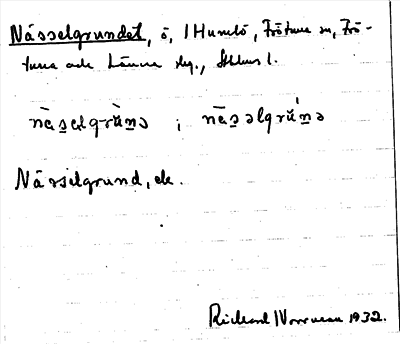 Nässelgrundet, ö, 1 Humlö, Frötuna sn, Frö-
tuna och Länna skg., Sthlms l.
näs̲elgrün̲ə ; näs̲əlgrün̲ə
Nässelgrund, ek.
Richard 1932.